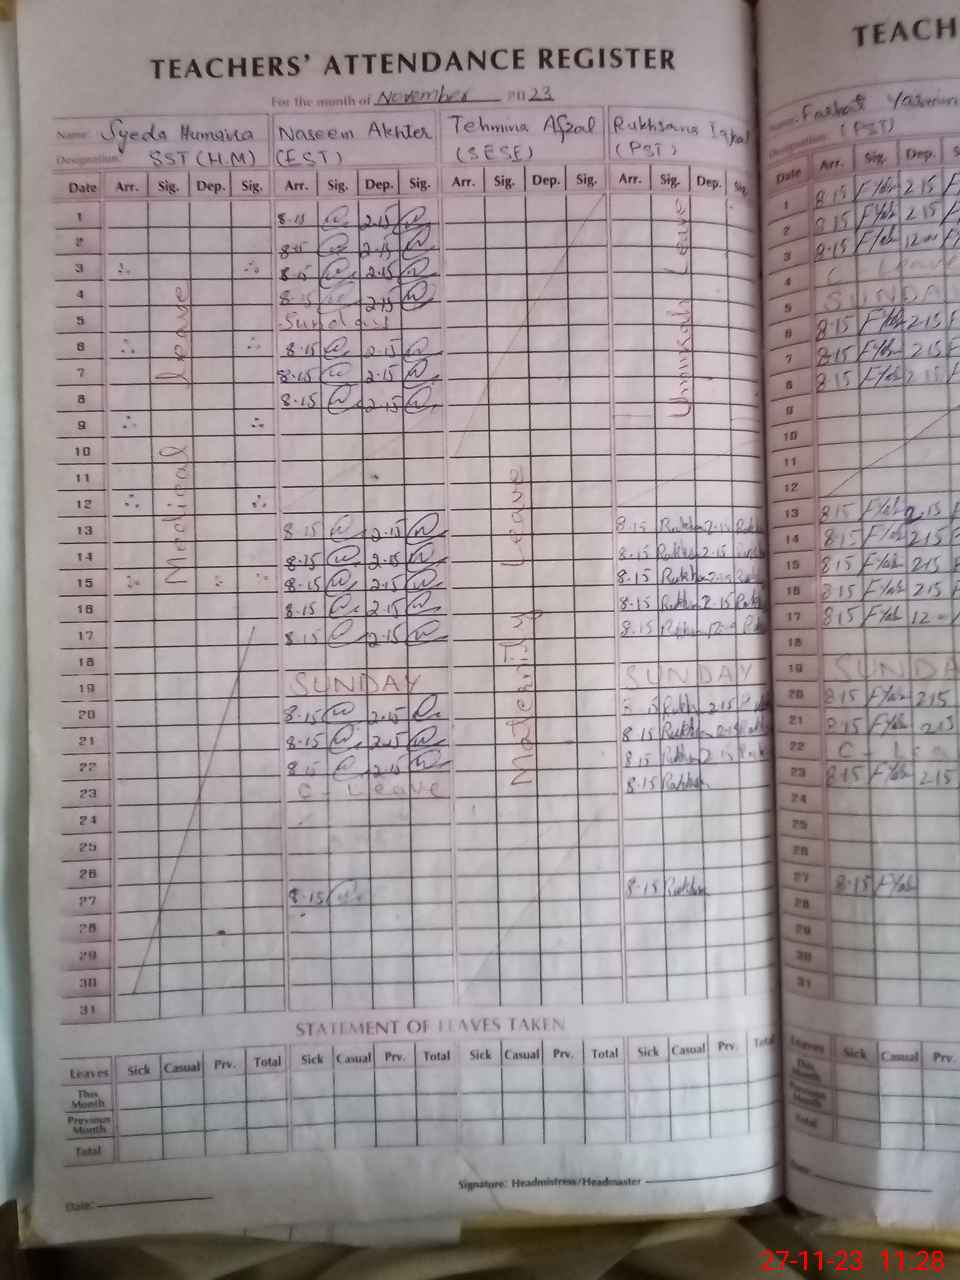 TEACHERS' ATTENDANCE REGISTER
For the month of November 23
Name: Syeda Humaira Naseem Akhter Tehmina Afzal Rukhsana Iqbal
Designation: SST (H.M) (EST) (SESE) (PST)
Date Arr. Sig. Dep. Sig. Arr. Sig. Dep. Sig. Arr. Sig. Dep. Sig. Arr. Sig. Dep. Sig.
Medical Leave
Maternity Leave
Unpaid Leave
1 8.15 2.15
2 8.15 2.15
3 8.15 2.15
4 8.15 2.15
5 Sunday
6 8.15 2.15
7 8.15 2.15
8 8.15 2.15
9
10
11
12
13 8.15 2.15 8.15 Rukhsa 2.15
14 8.15 2.15 8.15 Rukhsa 2.15
15 8.15 2.15 8.15 Rukhsa 2.15
16 8.15 2.15 8.15 Rukhsa 2.15
17 8.15 2.15 8.15 Rukhsa
18
19 SUNDAY SUNDAY
20 8.15 2.15 8.15 Rukhsa 2.15
21 8.15 2.15 8.15 Rukhsa 2.15
22 8.15 2.15 8.15 Rukhsa 2.15
23 C - Leave 8.15 Rukhsa
24
25
26
27 8.15 8.15 Rukhsa
28
29
30
31
STATEMENT OF LEAVES TAKEN
Leaves Sick Casual Prv. Total Sick Casual Prv. Total Sick Casual Prv. Total Sick Casual Prv. Total
This Month
Previous Month
Total
Signature: Headmistress/Headmaster
Date:
TEACH
Name: Farhat Yasmin
(PST)
Date Arr. Sig. Dep.
1 8.15 2.15
2 8.15 2.15
3 8.15 12.00
4 C - Leave
5 SUNDA
6 8.15 2.15
7 8.15 2.15
8 8.15 2.15
9
10
11
12
13 8.15 2.15
14 8.15 2.15
15 8.15 2.15
16 8.15 2.15
17 8.15 12.00
18
19 SUNDA
20 8.15 2.15
21 8.15 2.15
22 C - Lea
23 8.15 2.15
24
25
26
27 8.15
28
29
30
31
Leaves Sick Casual Prv.
This Month
Previous Month
Total
Date:
27-11-23 11:28